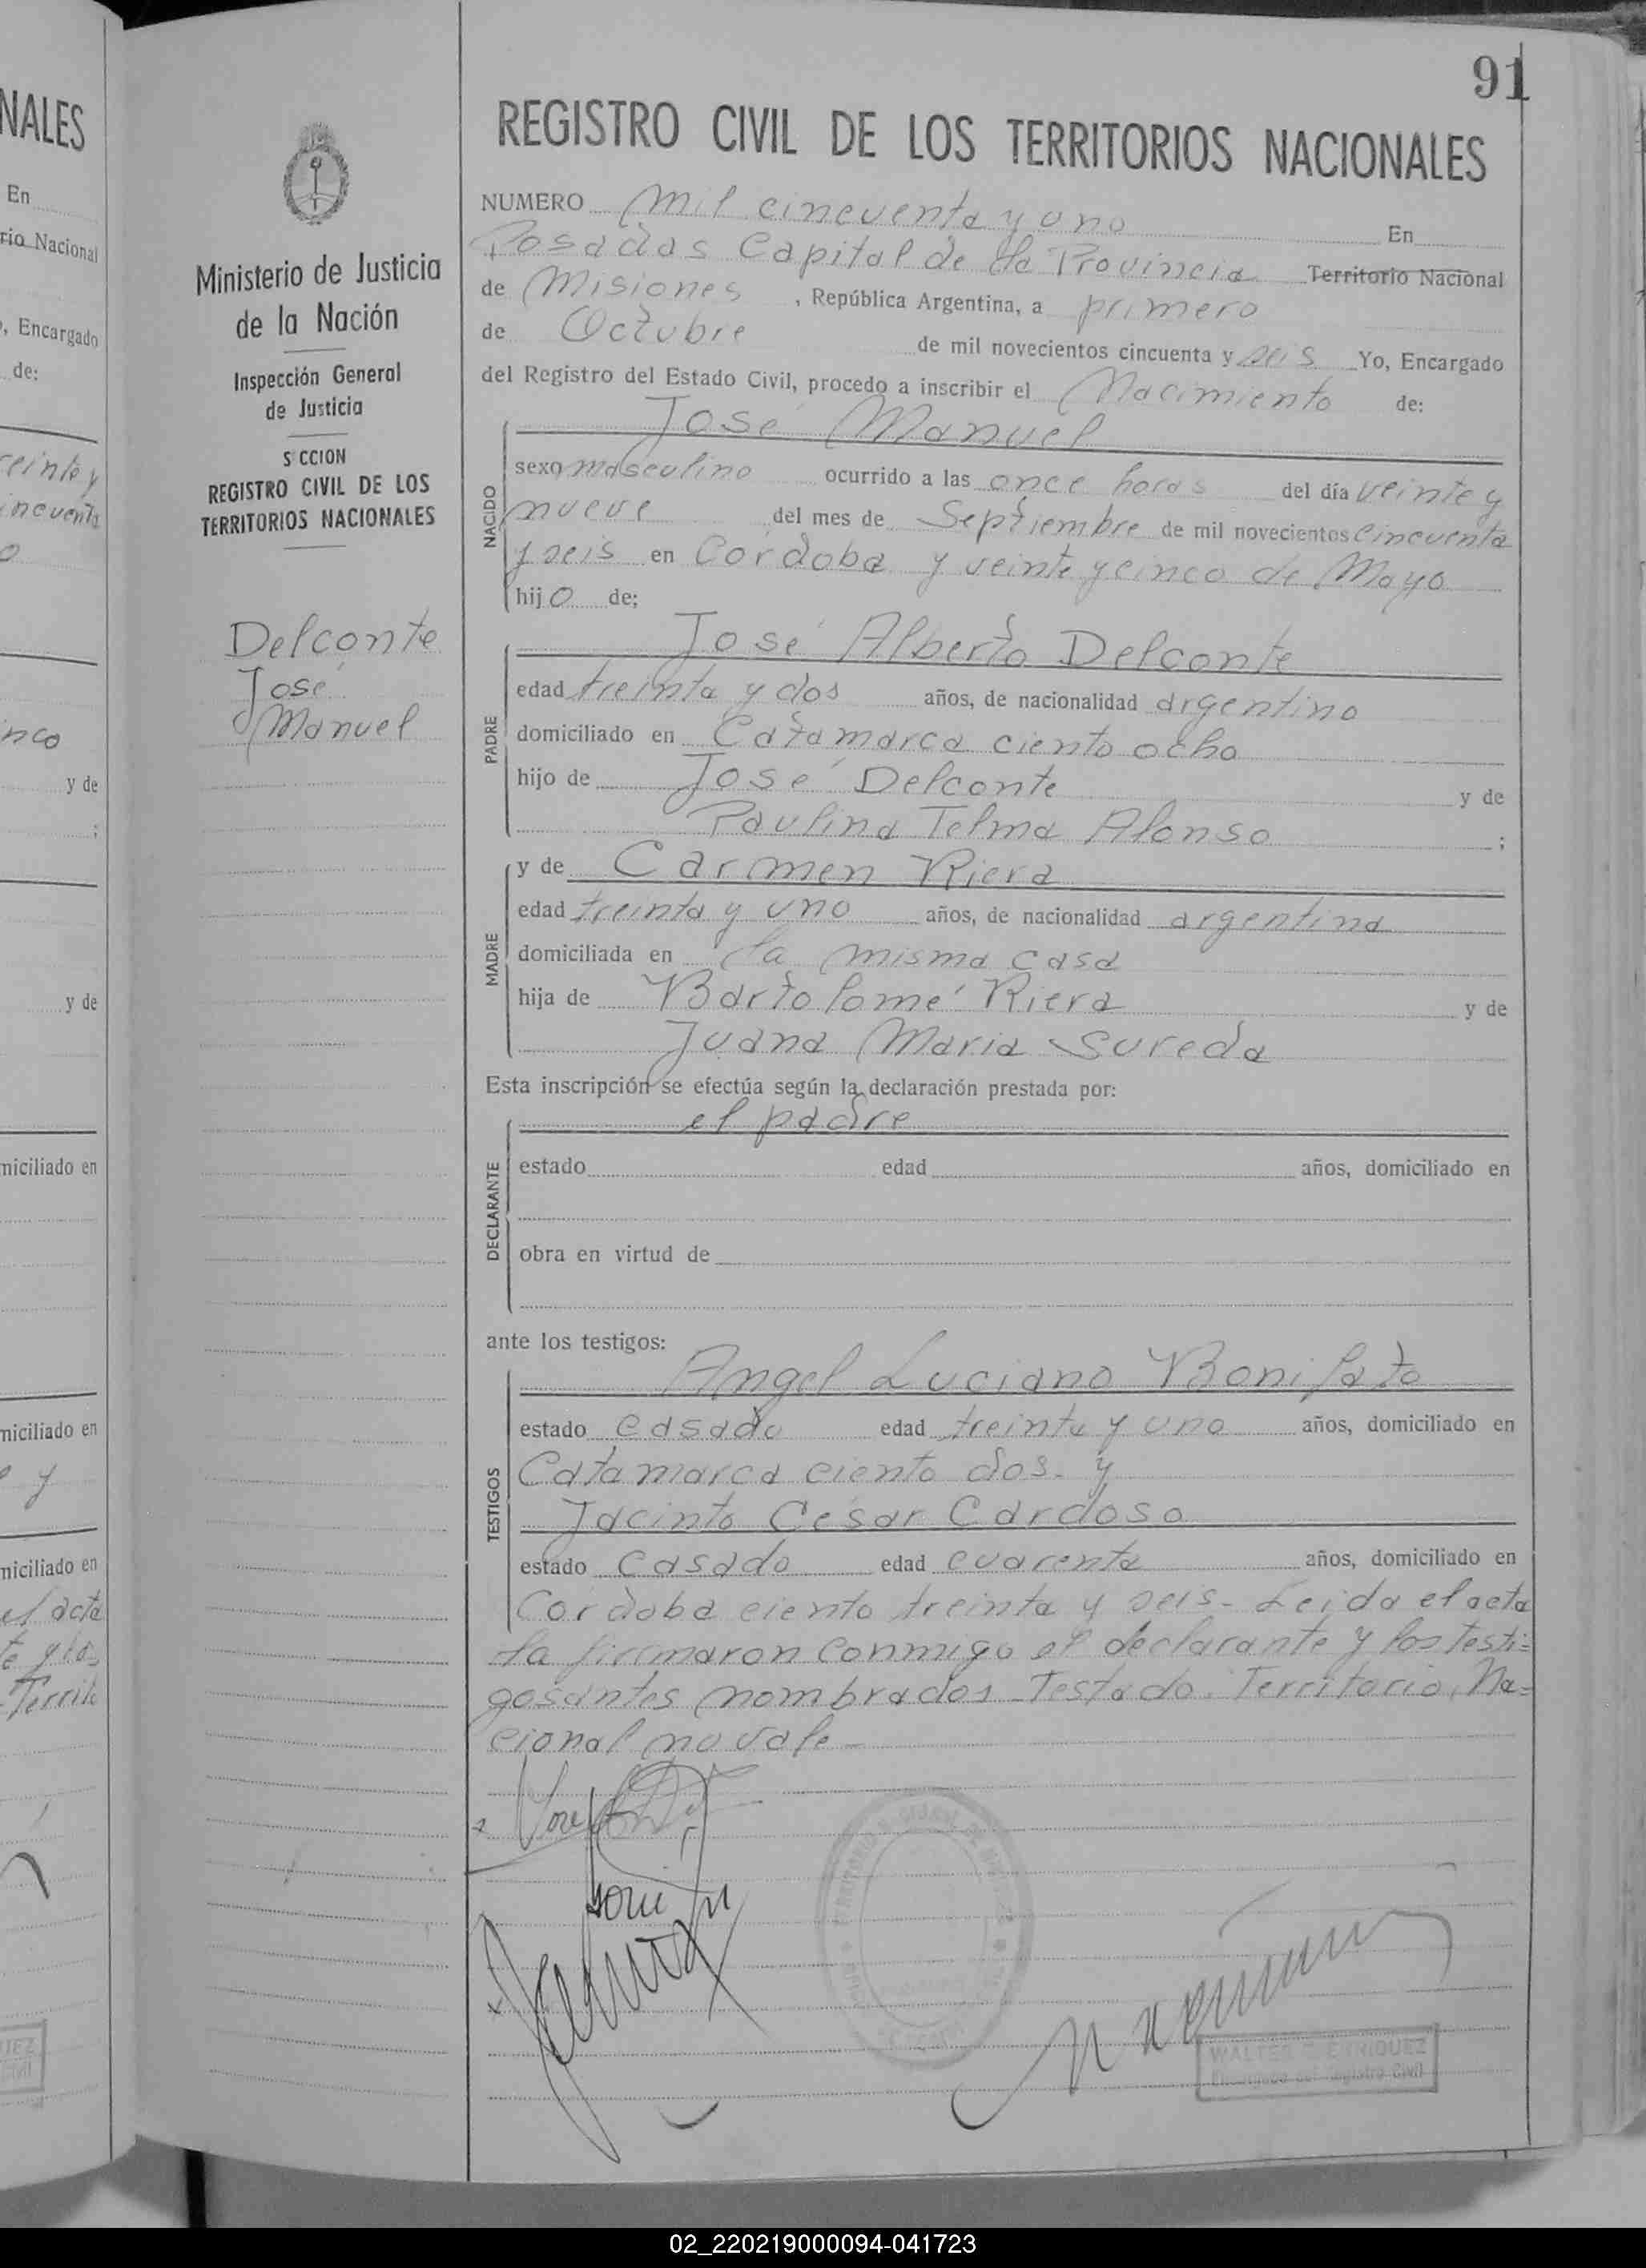 NALES
En
rio Nacional
, Encargado
de:
reinte y
incuenta
o
nco
y de
;
y de
miciliado en
miciliado en
y
miciliado en
el acta
te y los
Territo
Ministerio de Justicia
de la Nación
Inspección General
de Justicia
S CCION
REGISTRO CIVIL DE LOS
TERRITORIOS NACIONALES
Delconte
José
Manuel
91
REGISTRO CIVIL DE LOS TERRITORIOS NACIONALES
NUMERO mil cincuenta y uno En
Posadas Capital de la Provincia Territorio Nacional
de Misiones, República Argentina, a primero
de Octubre de mil novecientos cincuenta y seis Yo, Encargado
del Registro del Estado Civil, procedo a inscribir el Nacimiento de:
José Manuel
NACIDO
sexo masculino ocurrido a las once horas del día veinte y
nueve del mes de Septiembre de mil novecientos cincuenta
y seis en Córdoba y veinte y cinco de Mayo
hijo de;
José Alberto Delconte
PADRE
edad treinta y dos años, de nacionalidad argentino
domiciliado en Catamarca ciento ocho
hijo de José Delconte y de
Paulina Telma Alonso ;
y de Carmen Riera
MADRE
edad treinta y uno años, de nacionalidad argentina
domiciliada en la misma casa
hija de Bartolomé Riera y de
Juana Maria Sureda
Esta inscripción se efectúa según la declaración prestada por:
el padre
DECLARANTE
estado edad años, domiciliado en
obra en virtud de
ante los testigos:
Angel Luciano Bonifato
TESTIGOS
estado casado edad treinta y uno años, domiciliado en
Catamarca ciento dos. y
Jacinto César Cardoso
estado casado edad cuarenta años, domiciliado en
Cordoba ciento treinta y seis - Leida el acta
la firmaron conmigo el declarante y los testi=
gosantes nombrados - Testado: Territorio, Na=
cional no vale -
WALTER
Encargado del Registro Civil
02_220219000094-041723